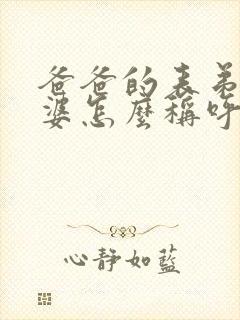 爸爸的表弟
婆怎麼稱呼
心靜如藍